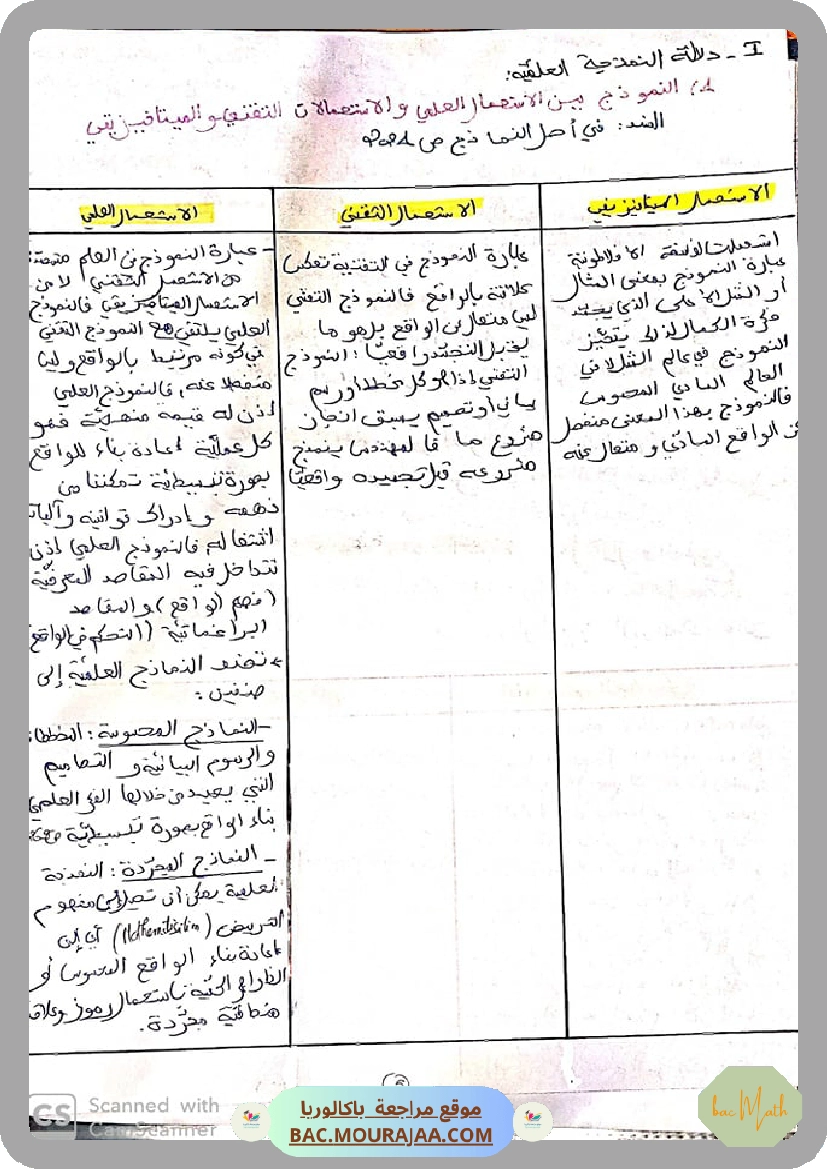 I - دلالة النمذجة العلمية:
1) النموذج بين الاستعمال العلمي والاستعمالات التقني والميتافيزيقي
السند: في أصل النماذج ص
الاستعمال الميتافيزيقي
استعملت الفلسفة الأفلاطونية
عبارة النموذج بمعنى المثال
أو المثل الأعلى الذي يجسد
فكرة الكمال لذلك يتميز
النموذج في عالم المثل لا في
العالم المادي المحسوس
فالنموذج بهذا المعنى منفصل
عن الواقع المادي و متعال عنه
الاستعمال التقني
عبارة النموذج في التقنية تعكس
علاقة بالواقع فالنموذج التقني
ليس متعال عن الواقع بل هو ما
يقبل التجسد واقعيّا: النموذج
التقني إذا هو كل مخطط أو رسم
بياني أو تصميم يسبق انجاز
مشروع ما فالمهندس ينمذج
مشروعه قبل تجسيده واقعيّا
الاستعمال العلمي
- عبارة النموذج في العلم
من الاستعمال التقني لا من
الاستعمال الميتافيزيقي فالنموذج
العلمي يلتقي مع النموذج التقني
في كونه مرتبط بالواقع وليس
منفصلا عنه، فالنموذج العلمي
إذن له قيمة منهجيّة فهو
كل عمليّة إعادة بناء للواقع
بصورة تبسيطيّة تمكننا من
فهمه و إدراك قوانينه وآليات
اشتغاله فالنموذج العلمي إذن
تتداخل فيه المقاصد المعرفيّة
(فهم الواقع) والمقاصد
البراغماتيّة (التحكم في الواقع
* تصنف النماذج العلميّة إلى
صنفين:
- النماذج المحسوسة: المخططات
والرسوم البيانيّة و التصاميم
التي يعيد من خلالها الفكر العلمي
بناء الواقع بصورة تبسيطيّة
- النماذج المجرّدة: النمذجة
العلمية يمكن أن تصل إلى مفهوم
الترييض (Mathématisation) أي إلى
إعادة بناء الواقع المحسوس أو
الظواهر الحيّة باستعمال رموز وعلاقات
منطقية مجرّدة.
GS Scanned with
CamScanner
موقع مراجعة باكالوريا
BAC.MOURAJAA.COM
bac Math